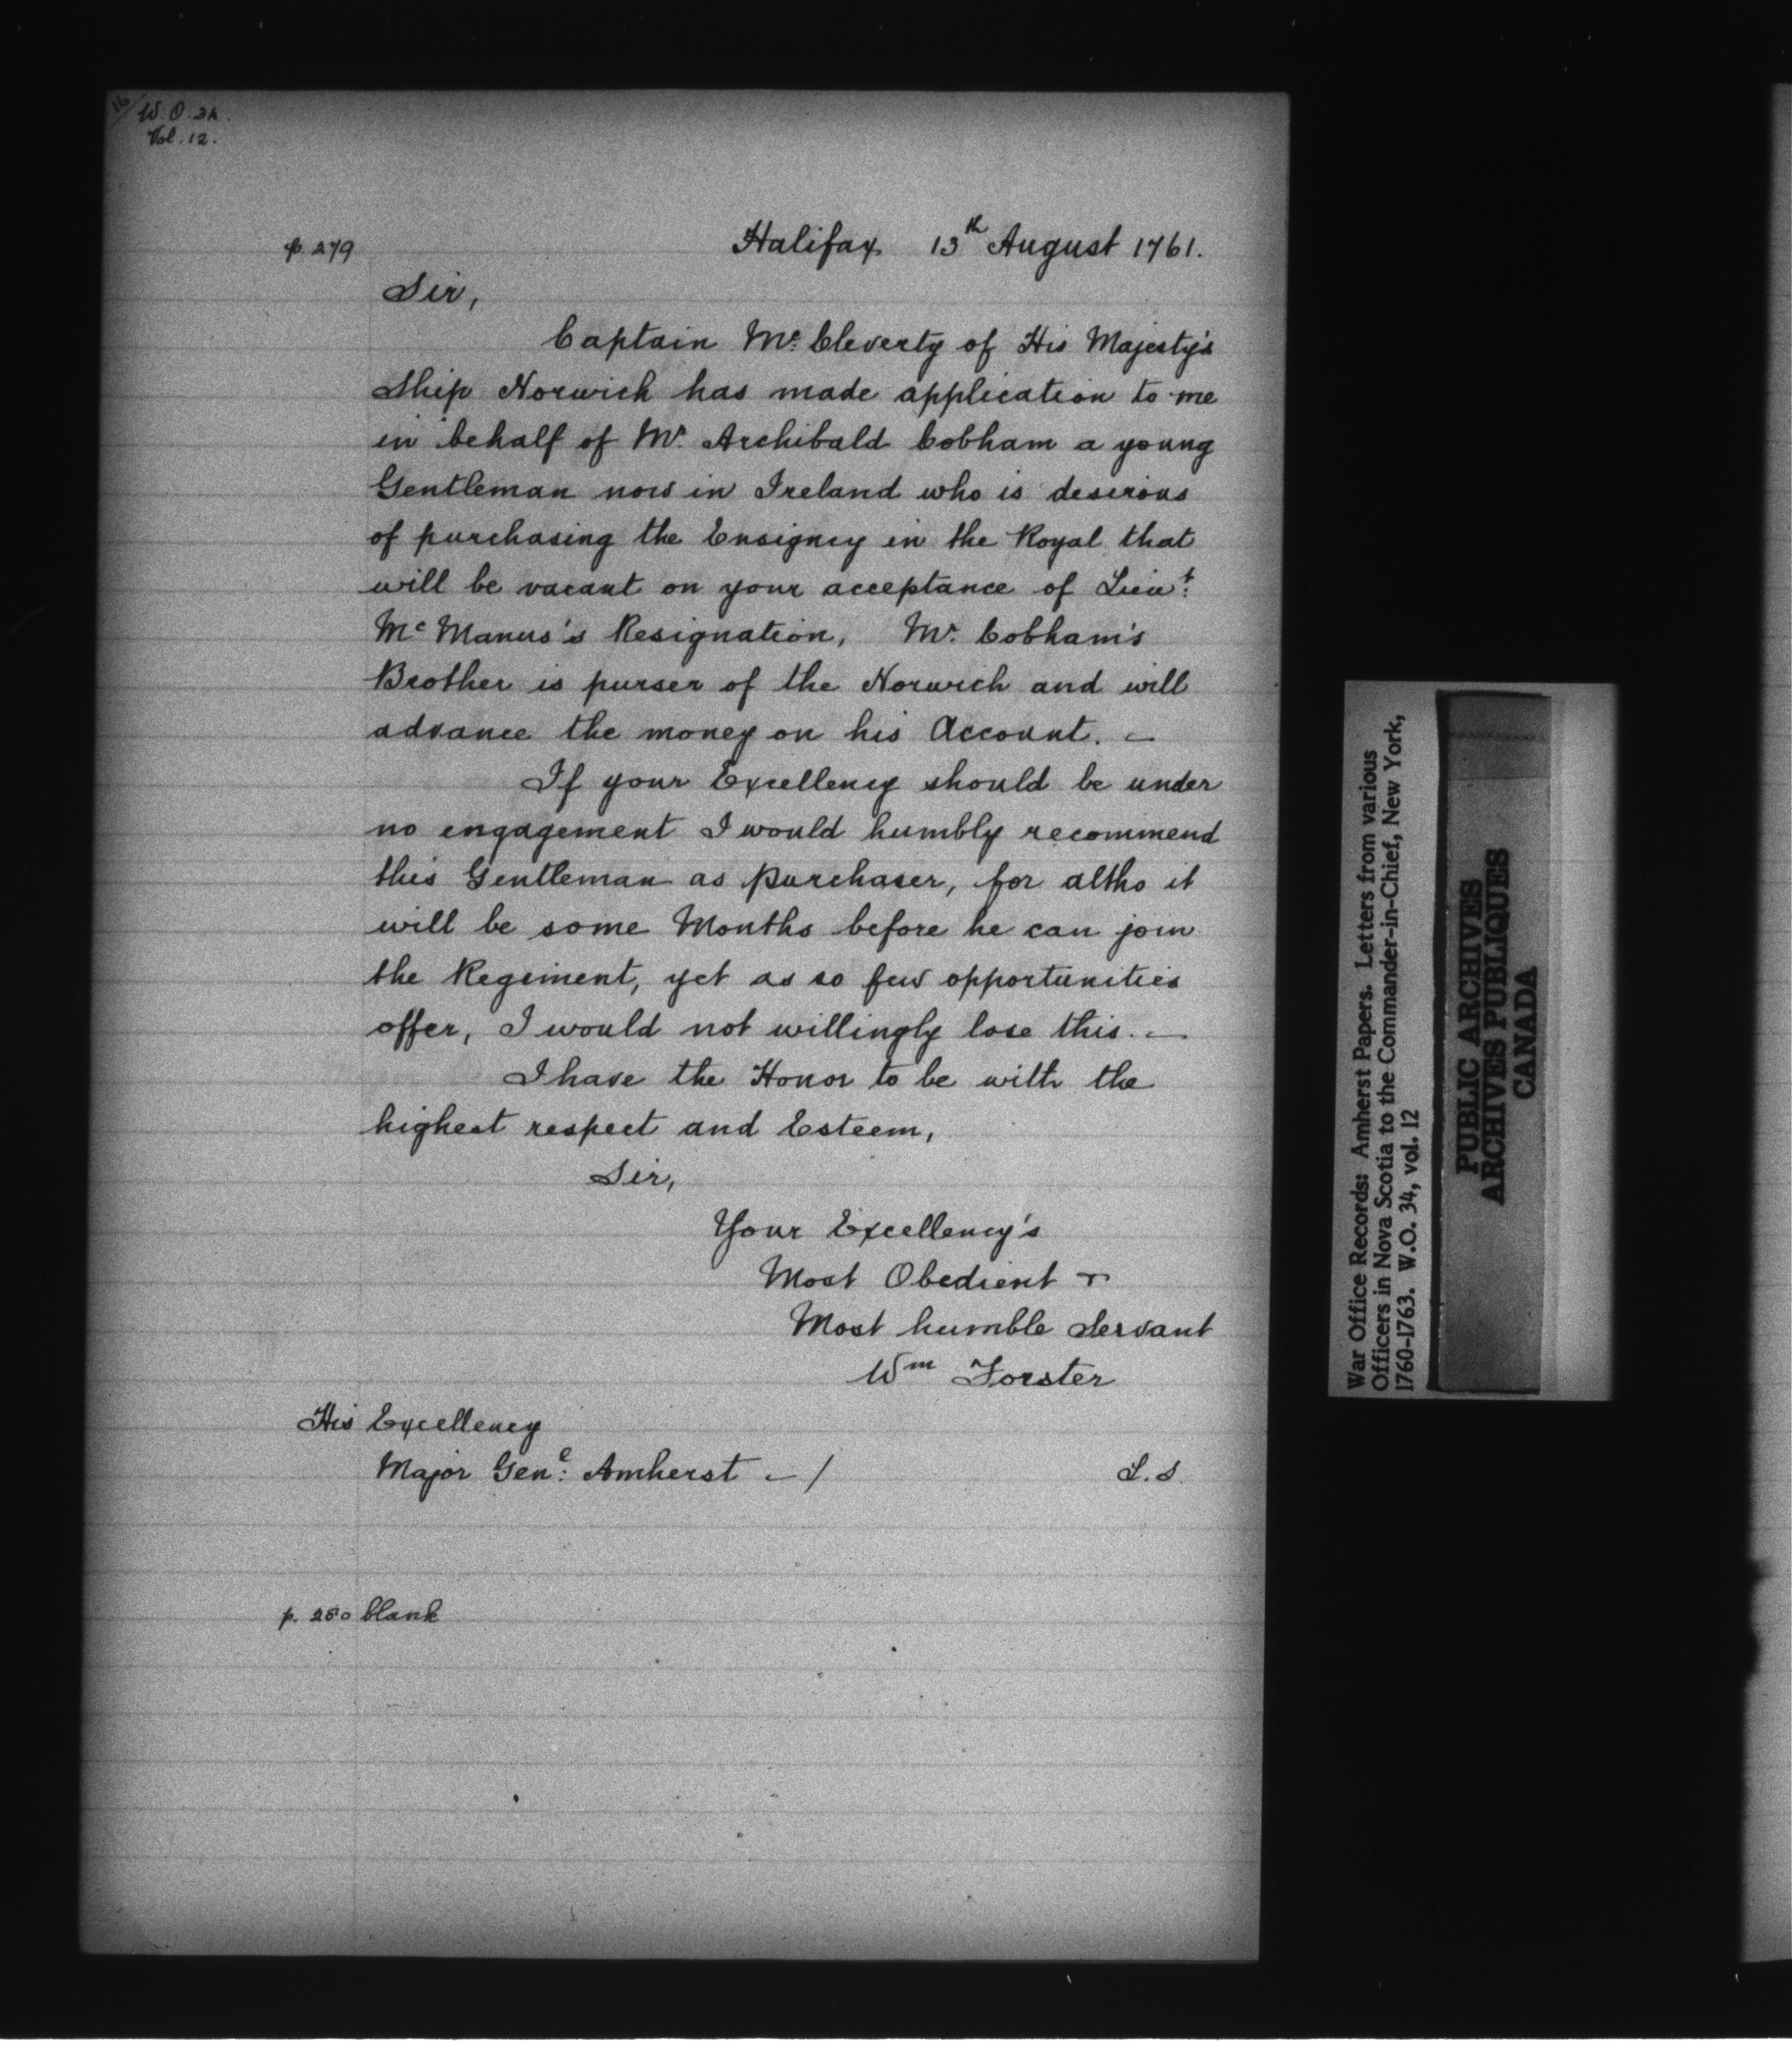 16
W.O. 34.
Vol. 12.
p. 279
Halifax 13th August 1761.
Sir,
Captain Mc. Cleverty of His Majesty's
Ship Norwich has made application to me
in behalf of Mr. Archibald Cobham a young
Gentleman now in Ireland who is desirous
of purchasing the Ensigncy in the Royal that
will be vacant on your acceptance of Lieut:
Mc Manus's Resignation, Mr. Cobham's
Brother is purser of the Norwich and will
advance the money on his Account. —
If your Excellency should be under
no engagement I would humbly recommend
this Gentleman as purchaser, for altho it
will be some Months before he can join
the Regiment, yet as so few opportunities
offer, I would not willingly lose this. —
I have the Honor to be with the
highest respect and Esteem,
Sir,
Your Excellency's
Most Obedient &
Most humble Servant
Wm Forster
His Excellency
Major Genl: Amherst — /
L.S.
p. 280 blank
War Office Records: Amherst Papers. Letters from various
Officers in Nova Scotia to the Commander-in-Chief, New York,
1760-1763. W.O. 34, vol. 12
PUBLIC ARCHIVES
ARCHIVES PUBLIQUES
CANADA